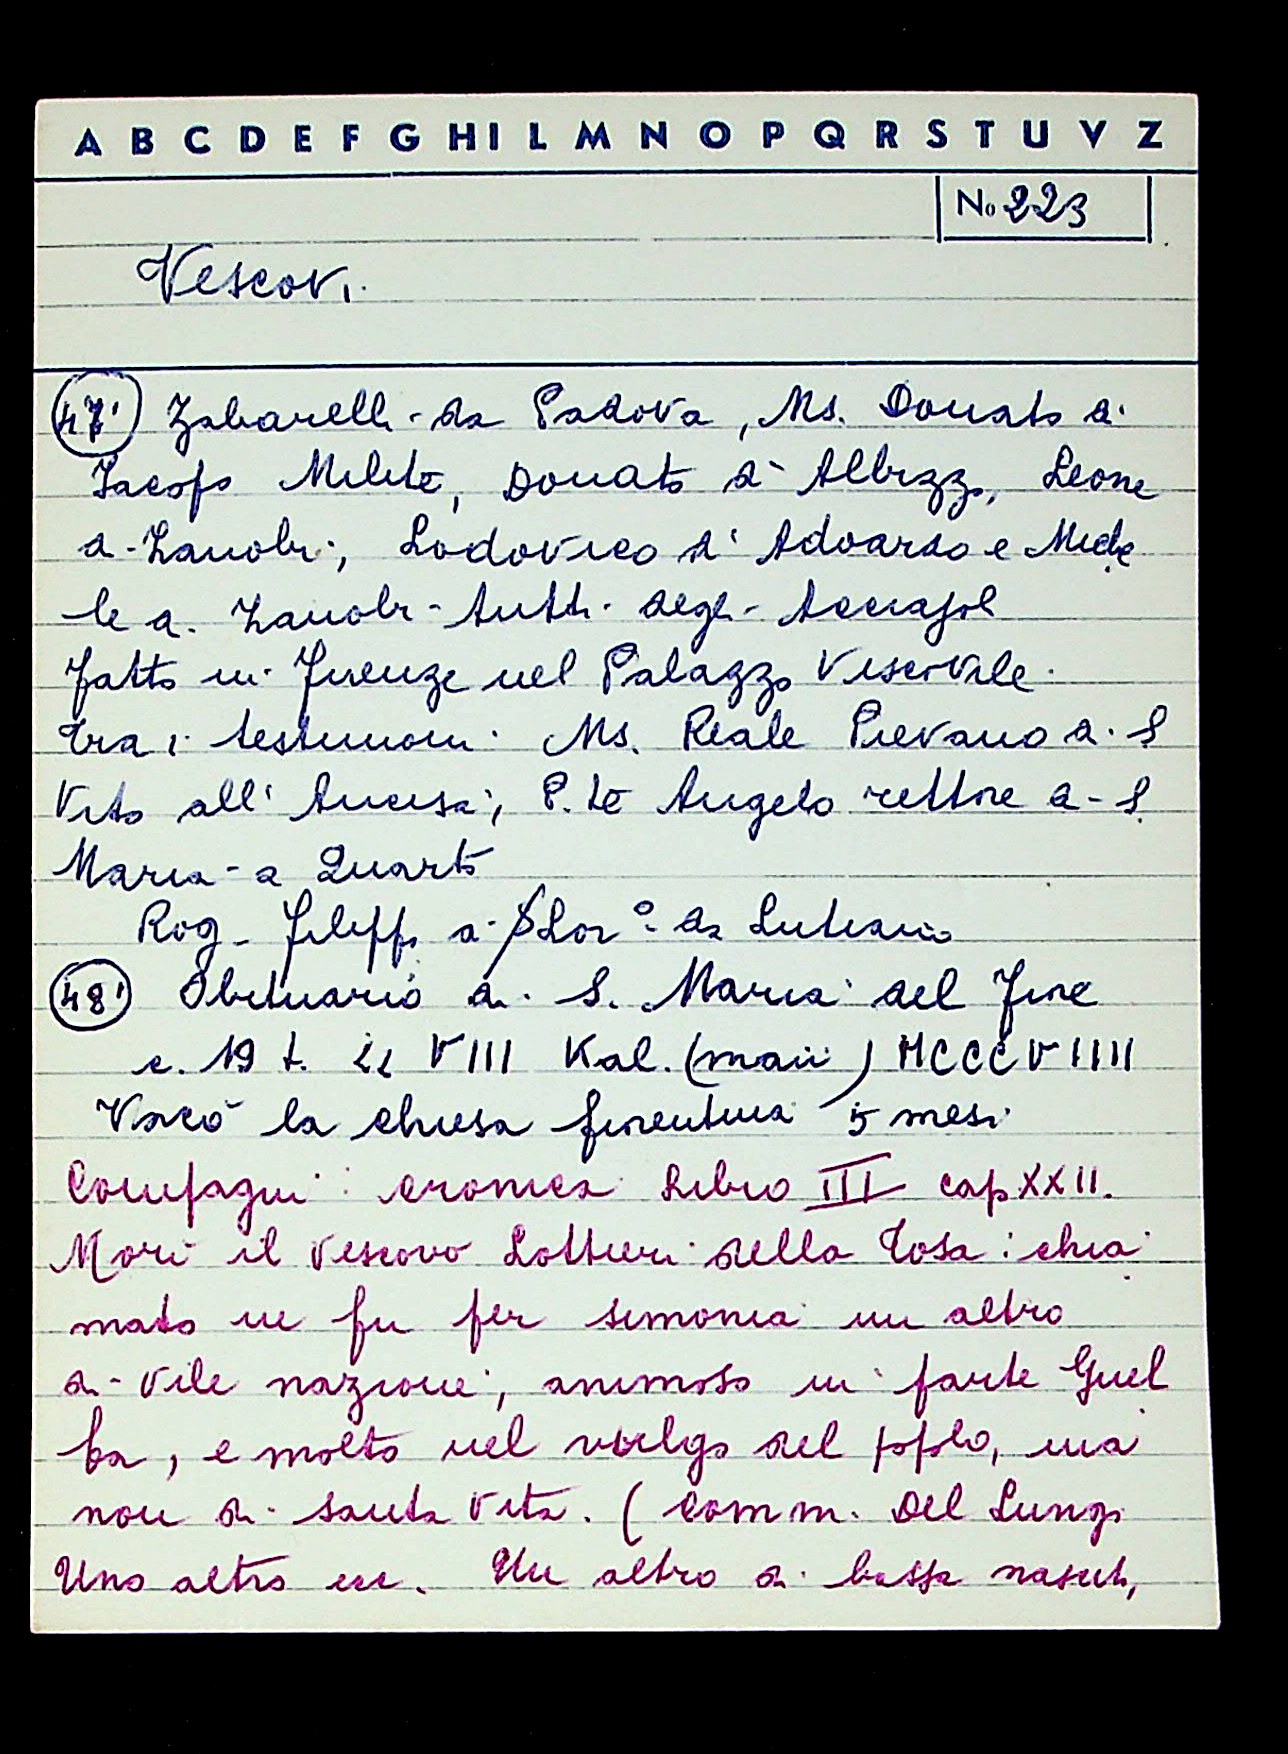 A B C D E F G H I L M N O P Q R S T U V Z
No 223
Vescovi
47) Zabarelli da Padova, Ms. Donato di
Iacopo Milite, Donato di Albizzo, Leone
di Zanobi, Lodovico di Adoardo e Miche
le di Zanobi tutti degli Acciajoli
fatto in Firenze nel Palazzo Vescovile.
tra i testimoni Ms. Reale Pievano di S
Vito all' Ancisa, P.te Angelo rettore di S.
Maria a Quarto
Rog. Filippo di Lor.º da Lutiano
48) Obituario di S. Maria del Fiore
c. 19 t. VIII Kal. (maii) MCCCVIIII
Vacò la chiesa fiorentina 5 mesi
Compagni: cronica Libro III cap XXII.
Morì il Vescovo Lottieri della Tosa: chia
mato ne fu per simonia un altro
di vile nazione, animoso in parte Guel
fa, e molto nel vulgo del popolo, ma
non di santa vita. (comm. Del Lungo
Uno altro ec. Un altro di bassa nascita,